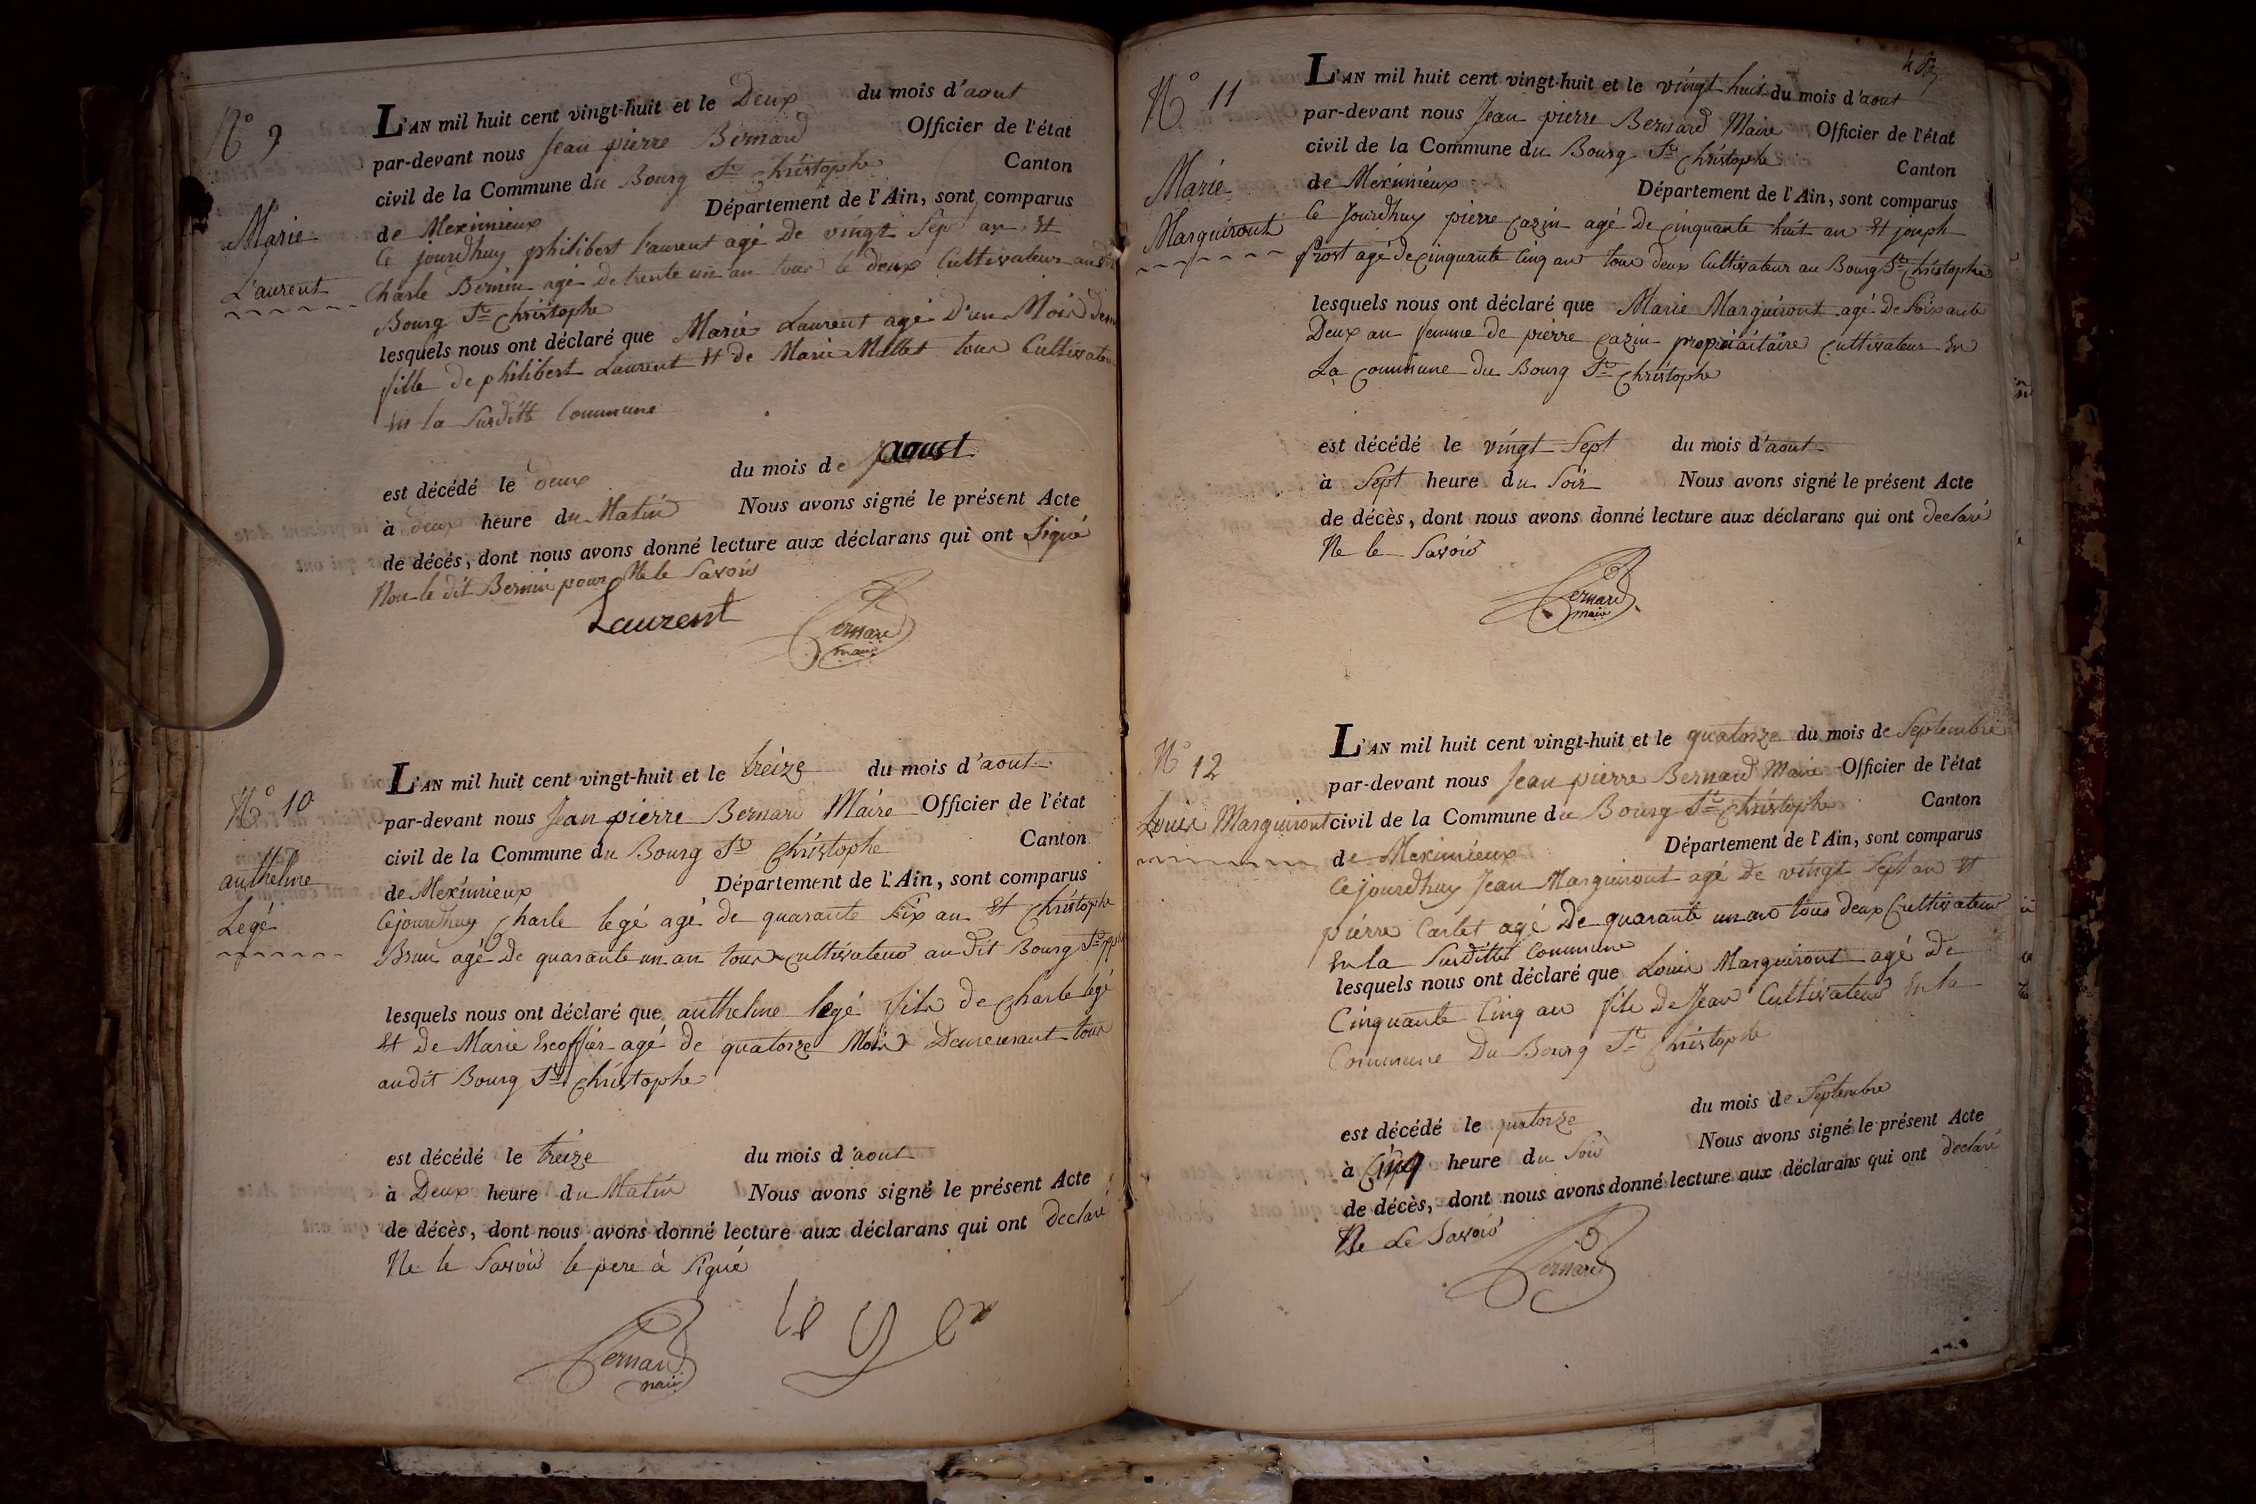 N° 9
Marie
Laurent
L'AN mil huit cent vingt-huit et le Deux du mois d'aout
par-devant nous Jean pierre Bernard Officier de l'état
civil de la Commune du Bourg St Christophe Canton
de Meximieux Département de l'Ain, sont comparus
Ce jourdhuy philibert Laurent agé De vingt Sept an Et
Charle Bernin agé De trente un an tous le deux Cultivateur audit
Bourg St Christophe
lesquels nous ont déclaré que Marie Laurent agé D'un Mois Demi
fille De philibert Laurent Et de Marie Millet tous Cultivateur
En la Susditte Commune
est décédé le deux du mois de aoust
à deux heure du Matin Nous avons signé le présent Acte
de décés, dont nous avons donné lecture aux déclarans qui ont Signé
Non le dit Bernin pour Ne le Savoir
Laurent Bernard
maire
N° 10
antheline
Legé
L'AN mil huit cent vingt-huit et le treize du mois d'aout
par-devant nous Jean pierre Bernard Maire Officier de l'état
civil de la Commune du Bourg St Christophe Canton
de Meximieux Département de l'Ain, sont comparus
Cejourdhuy Charle legé agé de quarante Six an Et Christophe
Brun agé De quarante un an tous cultivateur audit Bourg St
lesquels nous ont déclaré que antheline legé fils De Charle legé
Et De Marie Escoffier agé de quatorze Mois Demeurant tous
audit Bourg St Christophe
est décédé le treize du mois d'aout
à Deux heure du Matin Nous avons signé le présent Acte
de décès, dont nous avons donné lecture aux déclarans qui ont declaré
Ne le Savoir le pere à Signé
Bernard
maire
N° 11
Marie
Marguiront
L'AN mil huit cent vingt-huit et le vingt huit du mois d'aout
par-devant nous Jean pierre Bernard Maire Officier de l'état
civil de la Commune du Bourg St Christophe Canton
de Meximieux Département de l'Ain, sont comparus
Ce Jourdhuy pierre Cazin agé De Cinquante huit an Et joseph
prost agé de cinquante Cinq an tous deux Cultivateur au Bourg St Christophe
lesquels nous ont déclaré que Marie Marguiront agé De Soixante
Deux an femme de pierre Cazin propriaitaire Cultivateur En
La Commune Du Bourg St Christophe
est décédé le vingt Sept du mois d'aout
à Sept heure du Soir Nous avons signé le présent Acte
de décès, dont nous avons donné lecture aux déclarans qui ont declaré
Ne le Savoir
Bernard
maire
N° 12
Louis Marguiront
L'AN mil huit cent vingt-huit et le quatorze du mois de Septembre
par-devant nous Jean pierre Bernard Maire Officier de l'état
civil de la Commune du Bourg St Christophe Canton
de Meximieux Département de l'Ain, sont comparus
Cejourdhuy Jean Marguiront agé De vingt Sept an Et
pierre Carlet agé De quarante un an tous deux Cultivateur
En la Susditte Commune
lesquels nous ont déclaré que Louis Marguiront agé De
Cinquante Cinq an fils De Jean Cultivateur En la
Commune Du Bourg St Christophe
est décédé le quatorze du mois de Septembre
à Cinq heure du Soir Nous avons signé le présent Acte
de décès, dont nous avons donné lecture aux déclarans qui ont declaré
Ne Le Savoir
Bernard